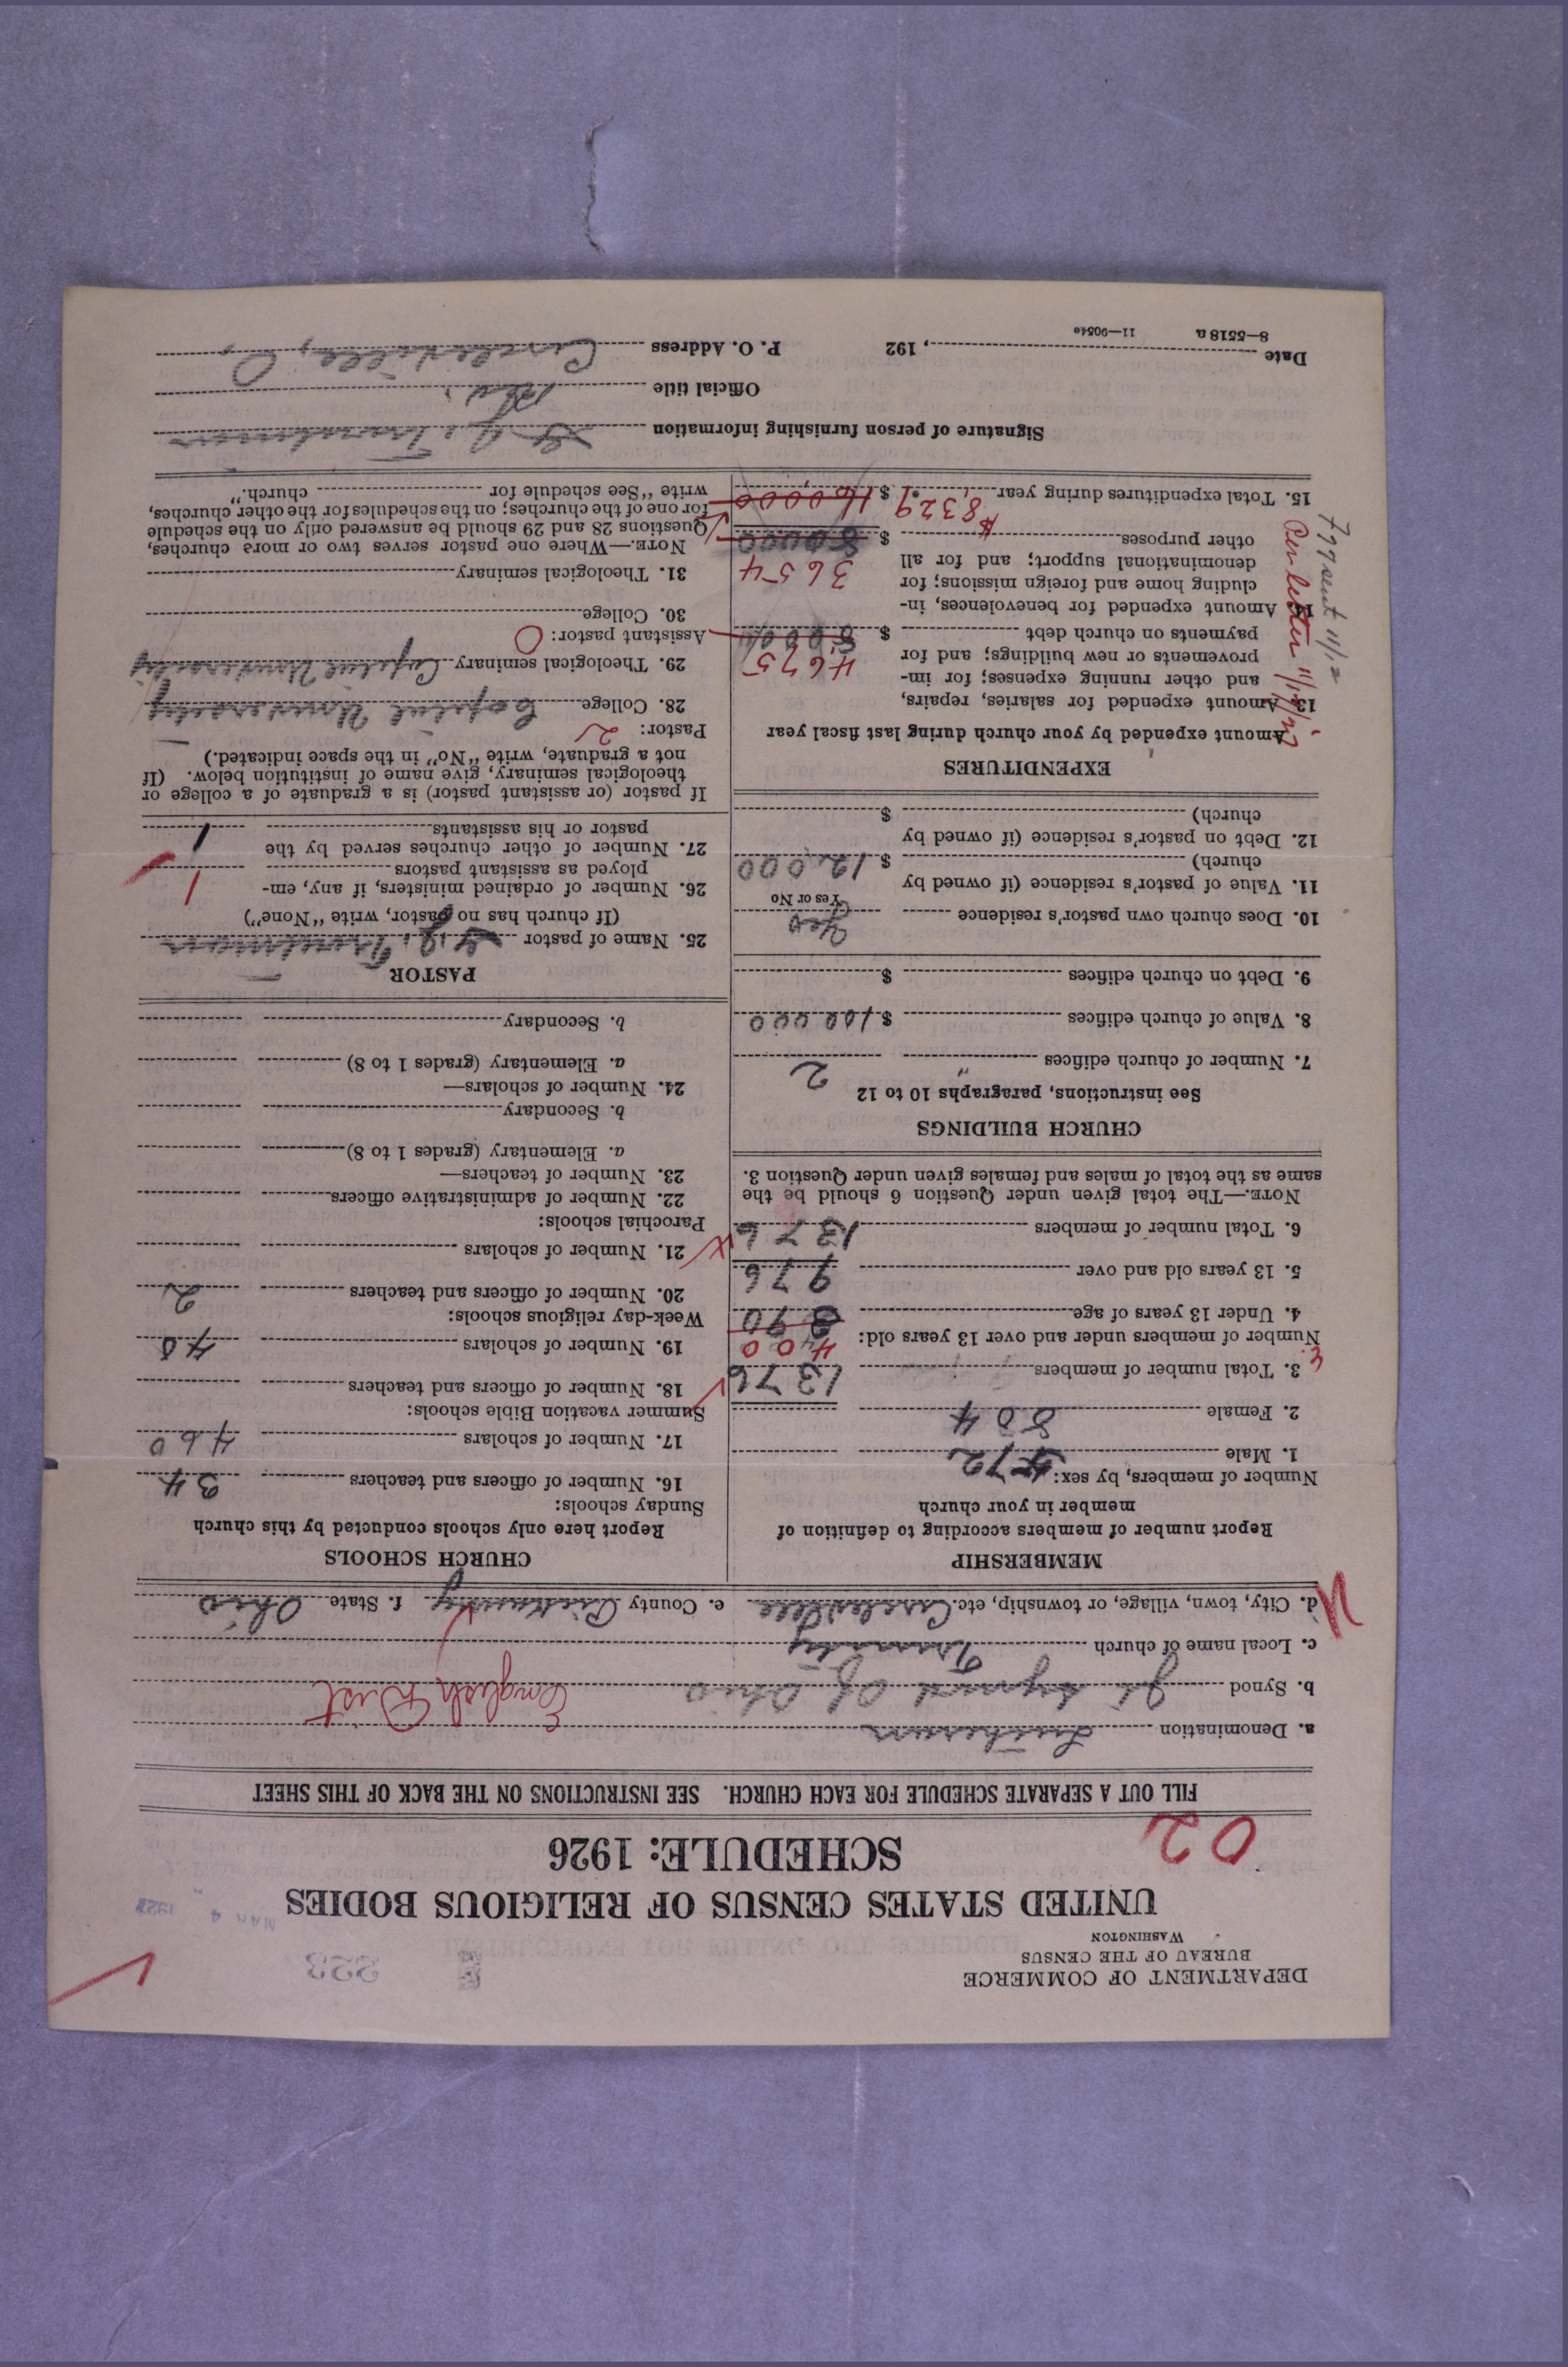 DEPARTMENT OF COMMERCE
BUREAU OF THE CENSUS
WASHINGTON
223
MAR 4 1927
UNITED STATES CENSUS OF RELIGIOUS BODIES
SCHEDULE: 1926
02
FILL OUT A SEPARATE SCHEDULE FOR EACH CHURCH. SEE INSTRUCTIONS ON THE BACK OF THIS SHEET
a. Denomination Lutheran
b. Synod Jt. Synod Of Ohio English Dist
c. Local name of church Trinity
d. City, town, village, or township, etc. Circleville e. County Pickaway f. State Ohio
MEMBERSHIP
Report number of members according to definition of
member in your church
Number of members, by sex:
1. Male 572
2. Female 804
3. Total number of members 1376
Number of members under and over 13 years old: 400
4. Under 13 years of age
5. 13 years old and over 976
6. Total number of members 1376
NOTE.—The total given under Question 6 should be the
same as the total of males and females given under Question 3.
CHURCH BUILDINGS
See instructions, paragraphs 10 to 12
7. Number of church edifices 2
8. Value of church edifices $100000
9. Debt on church edifices $
10. Does church own pastor's residence Yes
Yes or No
11. Value of pastor's residence (if owned by
church) $12,000
12. Debt on pastor's residence (if owned by
church) $
EXPENDITURES
Amount expended by your church during last fiscal year
13. Amount expended for salaries, repairs,
and other running expenses; for im-
provements or new buildings; and for 4675
payments on church debt $ 8000
14. Amount expended for benevolences, in-
cluding home and foreign missions; for
denominational support; and for all 3654
other purposes $ 8000
15. Total expenditures during year $8329 $ 16,000
Per letter 11/17/27
799 sent 11/12
CHURCH SCHOOLS
Report here only schools conducted by this church
Sunday schools:
16. Number of officers and teachers 34
17. Number of scholars 460
Summer vacation Bible schools:
18. Number of officers and teachers
19. Number of scholars 40
Week-day religious schools:
20. Number of officers and teachers 2
21. Number of scholars
Parochial schools:
22. Number of administrative officers
23. Number of teachers—
a. Elementary (grades 1 to 8)
b. Secondary
24. Number of scholars—
a. Elementary (grades 1 to 8)
b. Secondary
PASTOR
25. Name of pastor G. J. Troutman
(If church has no pastor, write "None")
26. Number of ordained ministers, if any, em-
ployed as assistant pastors 1
27. Number of other churches served by the
pastor or his assistants 1
If pastor (or assistant pastor) is a graduate of a college or
theological seminary, give name of institution below. (If
not a graduate, write "No" in the space indicated.)
Pastor: 2
28. College Capital University
29. Theological seminary Capital University
Assistant pastor: 0
30. College
31. Theological seminary
NOTE.—Where one pastor serves two or more churches,
Questions 28 and 29 should be answered only on the schedule
for one of the churches; on the schedules for the other churches,
write "See schedule for church."
Signature of person furnishing information G. J. Troutman
Official title
Date , 192 P. O. Address Circleville, O
8—5518 a 11—9054e